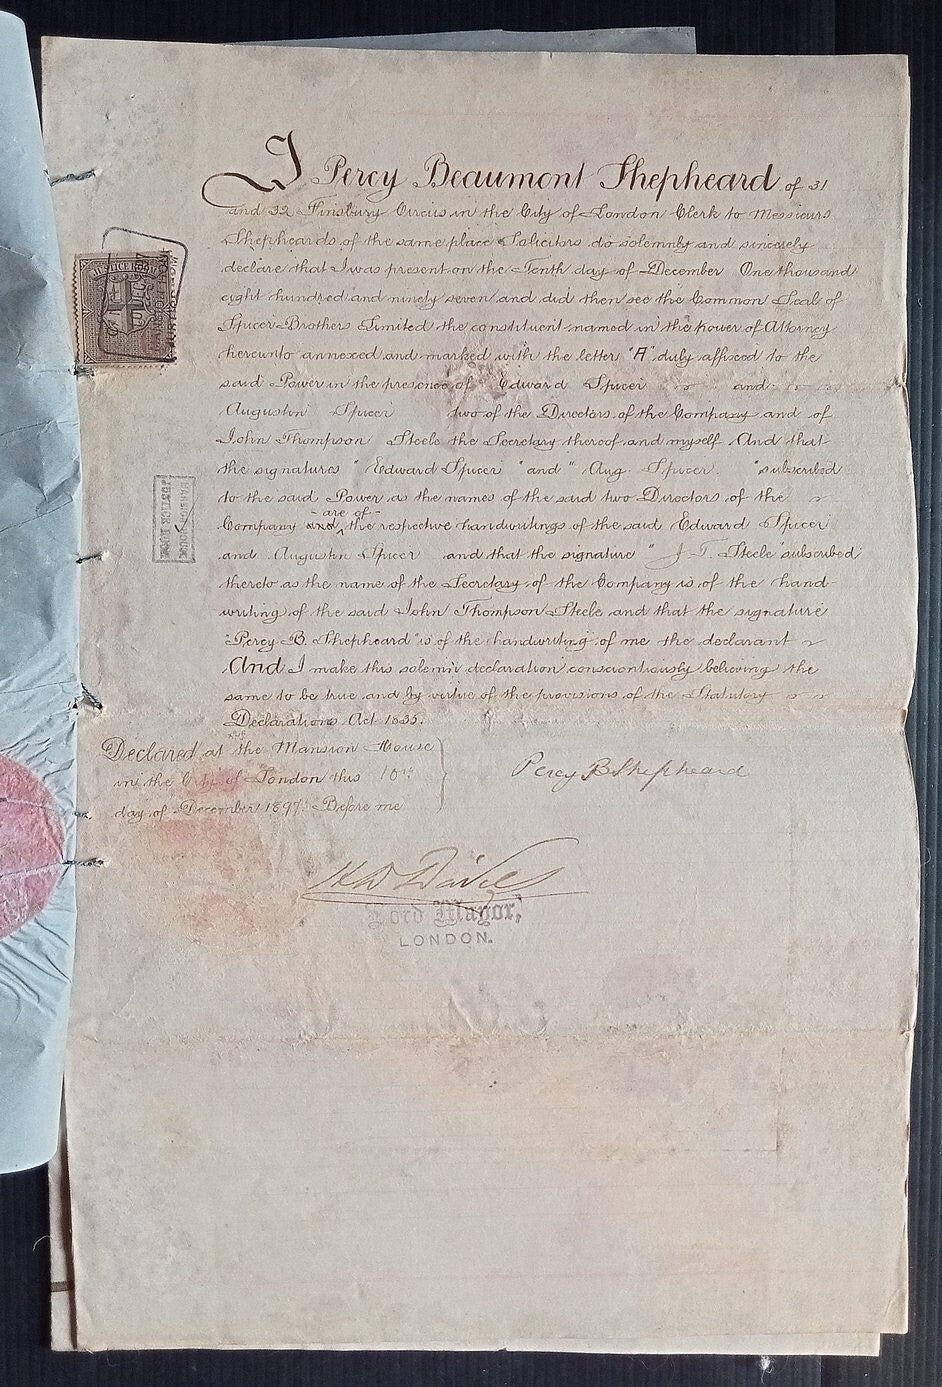 I Percy Beaumont Shepheard of 31
and 32 Finsbury Circus in the City of London Clerk to Messieurs
Shepheards of the same place Solicitors do solemnly and sincerely
declare that I was present on the Tenth day of December One thousand
eight hundred and ninety seven and did then see the Common Seal of
Spicer Brothers Limited the constituent named in the Power of Attorney
hereunto annexed and marked with the letter "A" duly affixed to the
said Power in the presence of Edward Spicer and
Augustin Spicer two of the Directors of the Company and of
John Thompson Steele the Secretary thereof and myself And that
the signatures "Edward Spicer" and "Aug. Spicer." subscribed
to the said Power as the names of the said two Directors of the
are of
Company and the respective handwritings of the said Edward Spicer
and Augustin Spicer and that the signature "J. T. Steele" subscribed
thereto as the name of the Secretary of the Company is of the hand-
writing of the said John Thompson Steele and that the signature
"Percy B. Shepheard" is of the handwriting of me the declarant
And I make this solemn declaration conscientiously believing the
same to be true and by virtue of the provisions of the Statutory
Declarations Act 1835.
Declared at the Mansion House
in the City of London this 10th
day of December 1897. Before me
Percy B Shepheard
H D Davies
Lord Mayor,
LONDON.
JUSTICE ROOM
MANSION HOUSE
JUSTICE ROOM